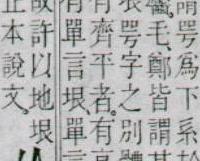 謂咢為下系
毛、鄭皆謂其
垠咢字之別體
有齊平者。有高
有單言垠、單言
故許以地垠
正本說文。